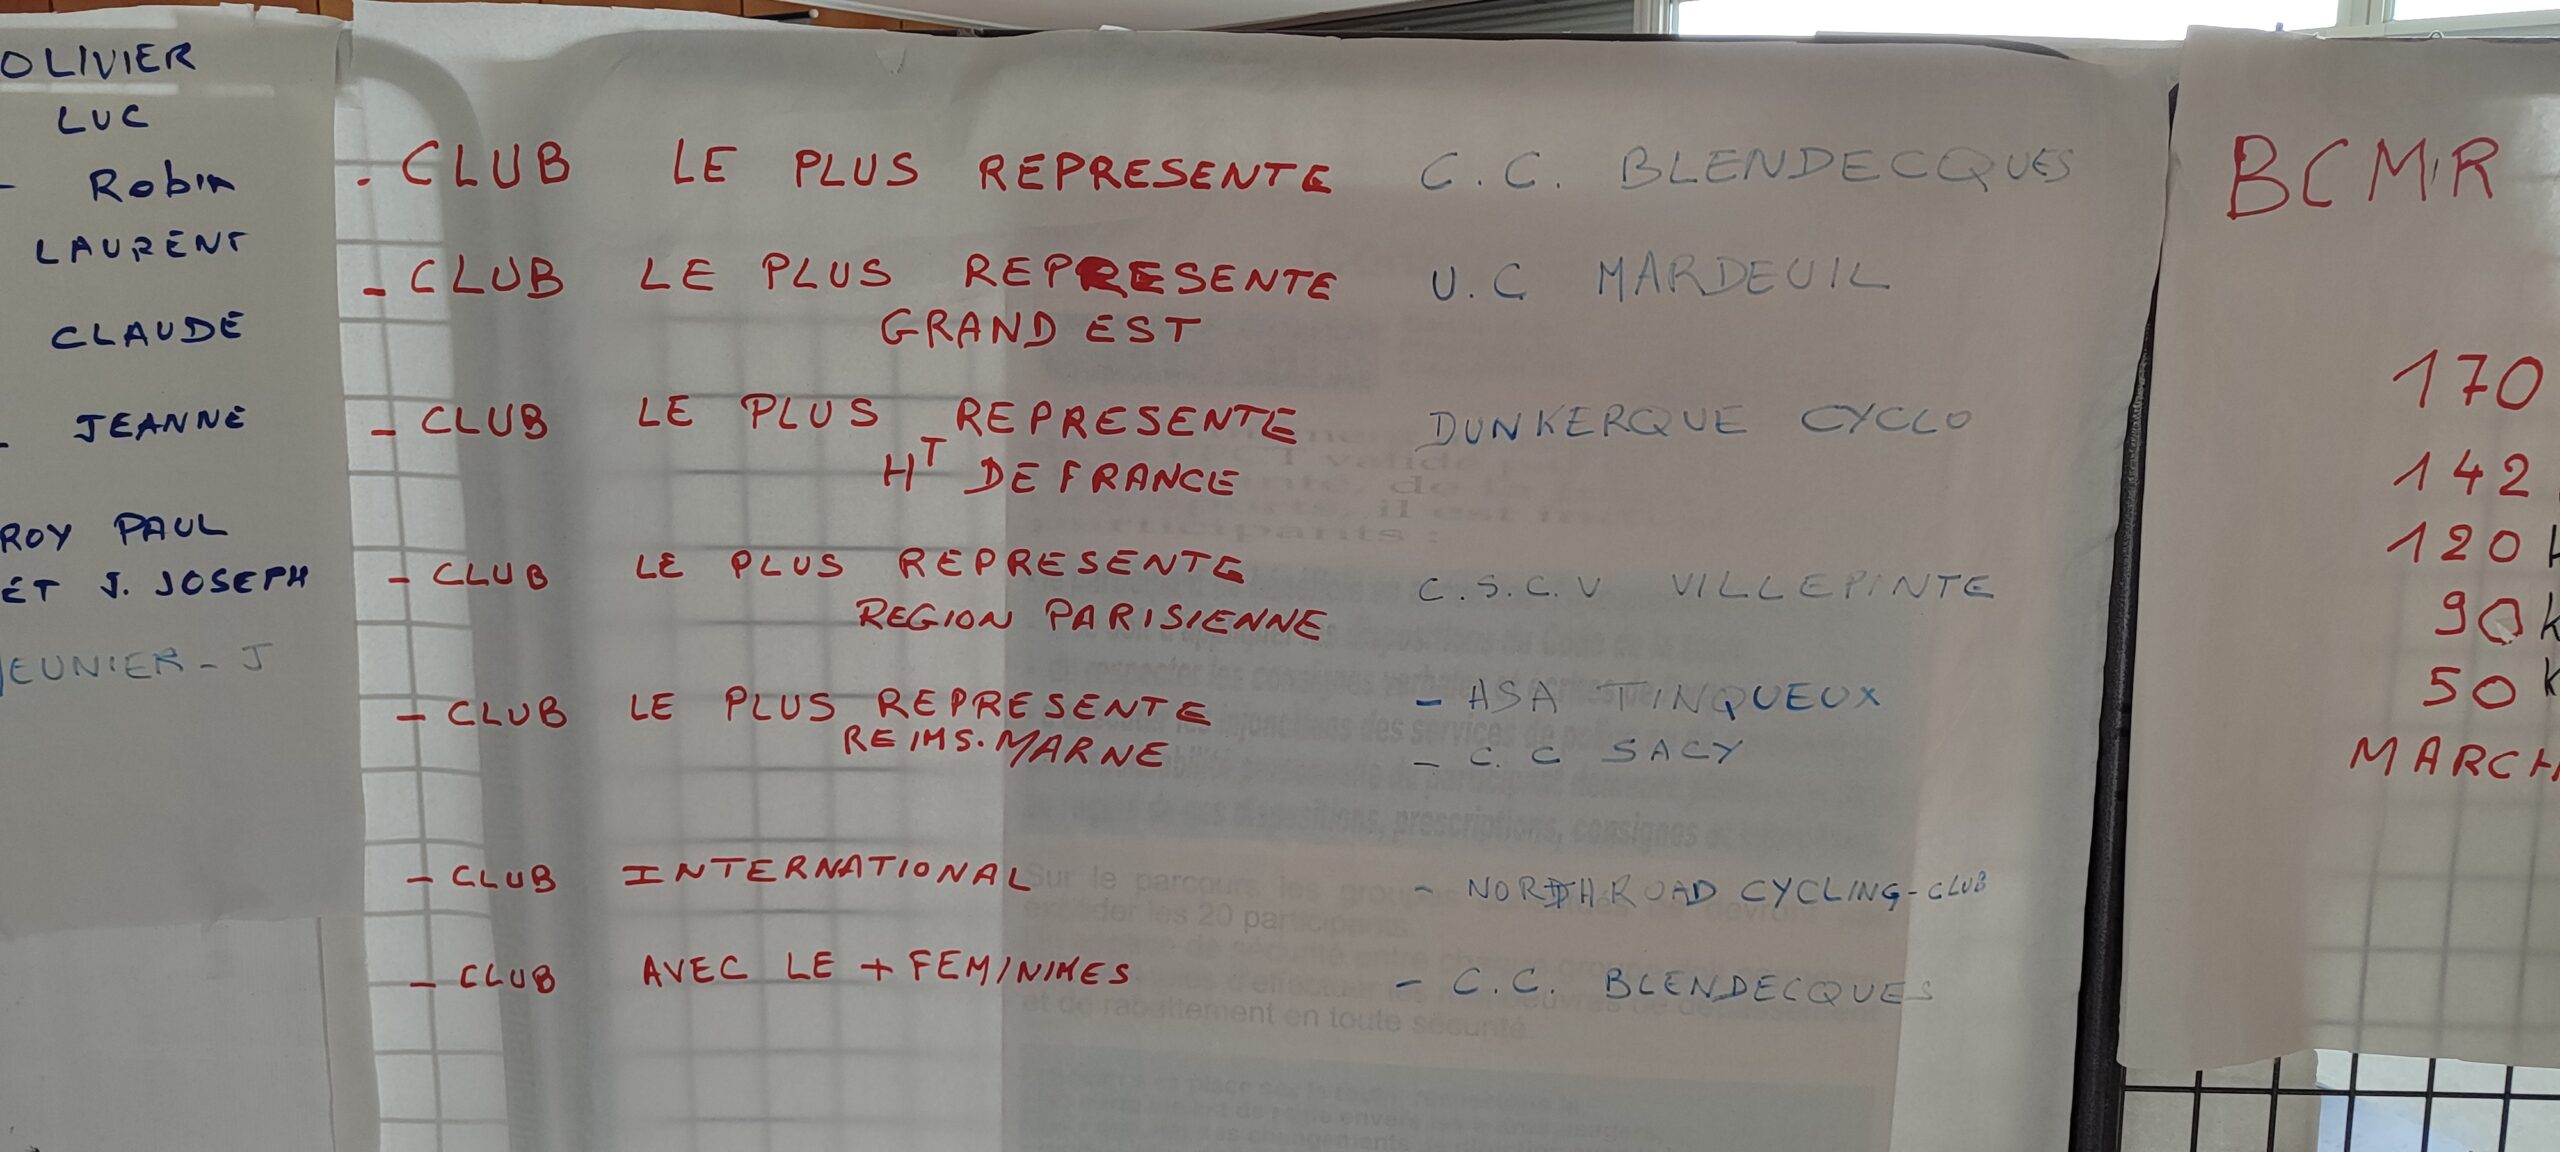 OLIVIER
LUC
- Robin
LAURENT
CLAUDE
- JEANNE
ROY PAUL
ET J. JOSEPH
EUNIER - J
. CLUB LE PLUS REPRESENTE C.C. BLENDECQUES
- CLUB LE PLUS REPRESENTE U.C MARDEUIL
GRAND EST
- CLUB LE PLUS REPRESENTE DUNKERQUE CYCLO
HT DE FRANCE
- CLUB LE PLUS REPRESENTE C.S.C.V VILLEPINTE
REGION PARISIENNE
- CLUB LE PLUS REPRESENTE - ASA TINQUEUX
REIMS.MARNE - C.C SACY
- CLUB INTERNATIONAL - NORTH ROAD CYCLING-CLUB
- CLUB AVEC LE + FEMININES - C.C. BLENDECQUES
Sur le parcours, les groupes
excéder les 20 participants.
et de rabattement en toute sécurité.
BCMR
170
142
120
90 K
50 K
MARCH